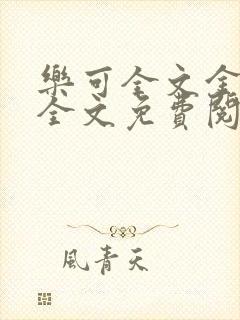 樂可全文全
全文免費閱
風青天